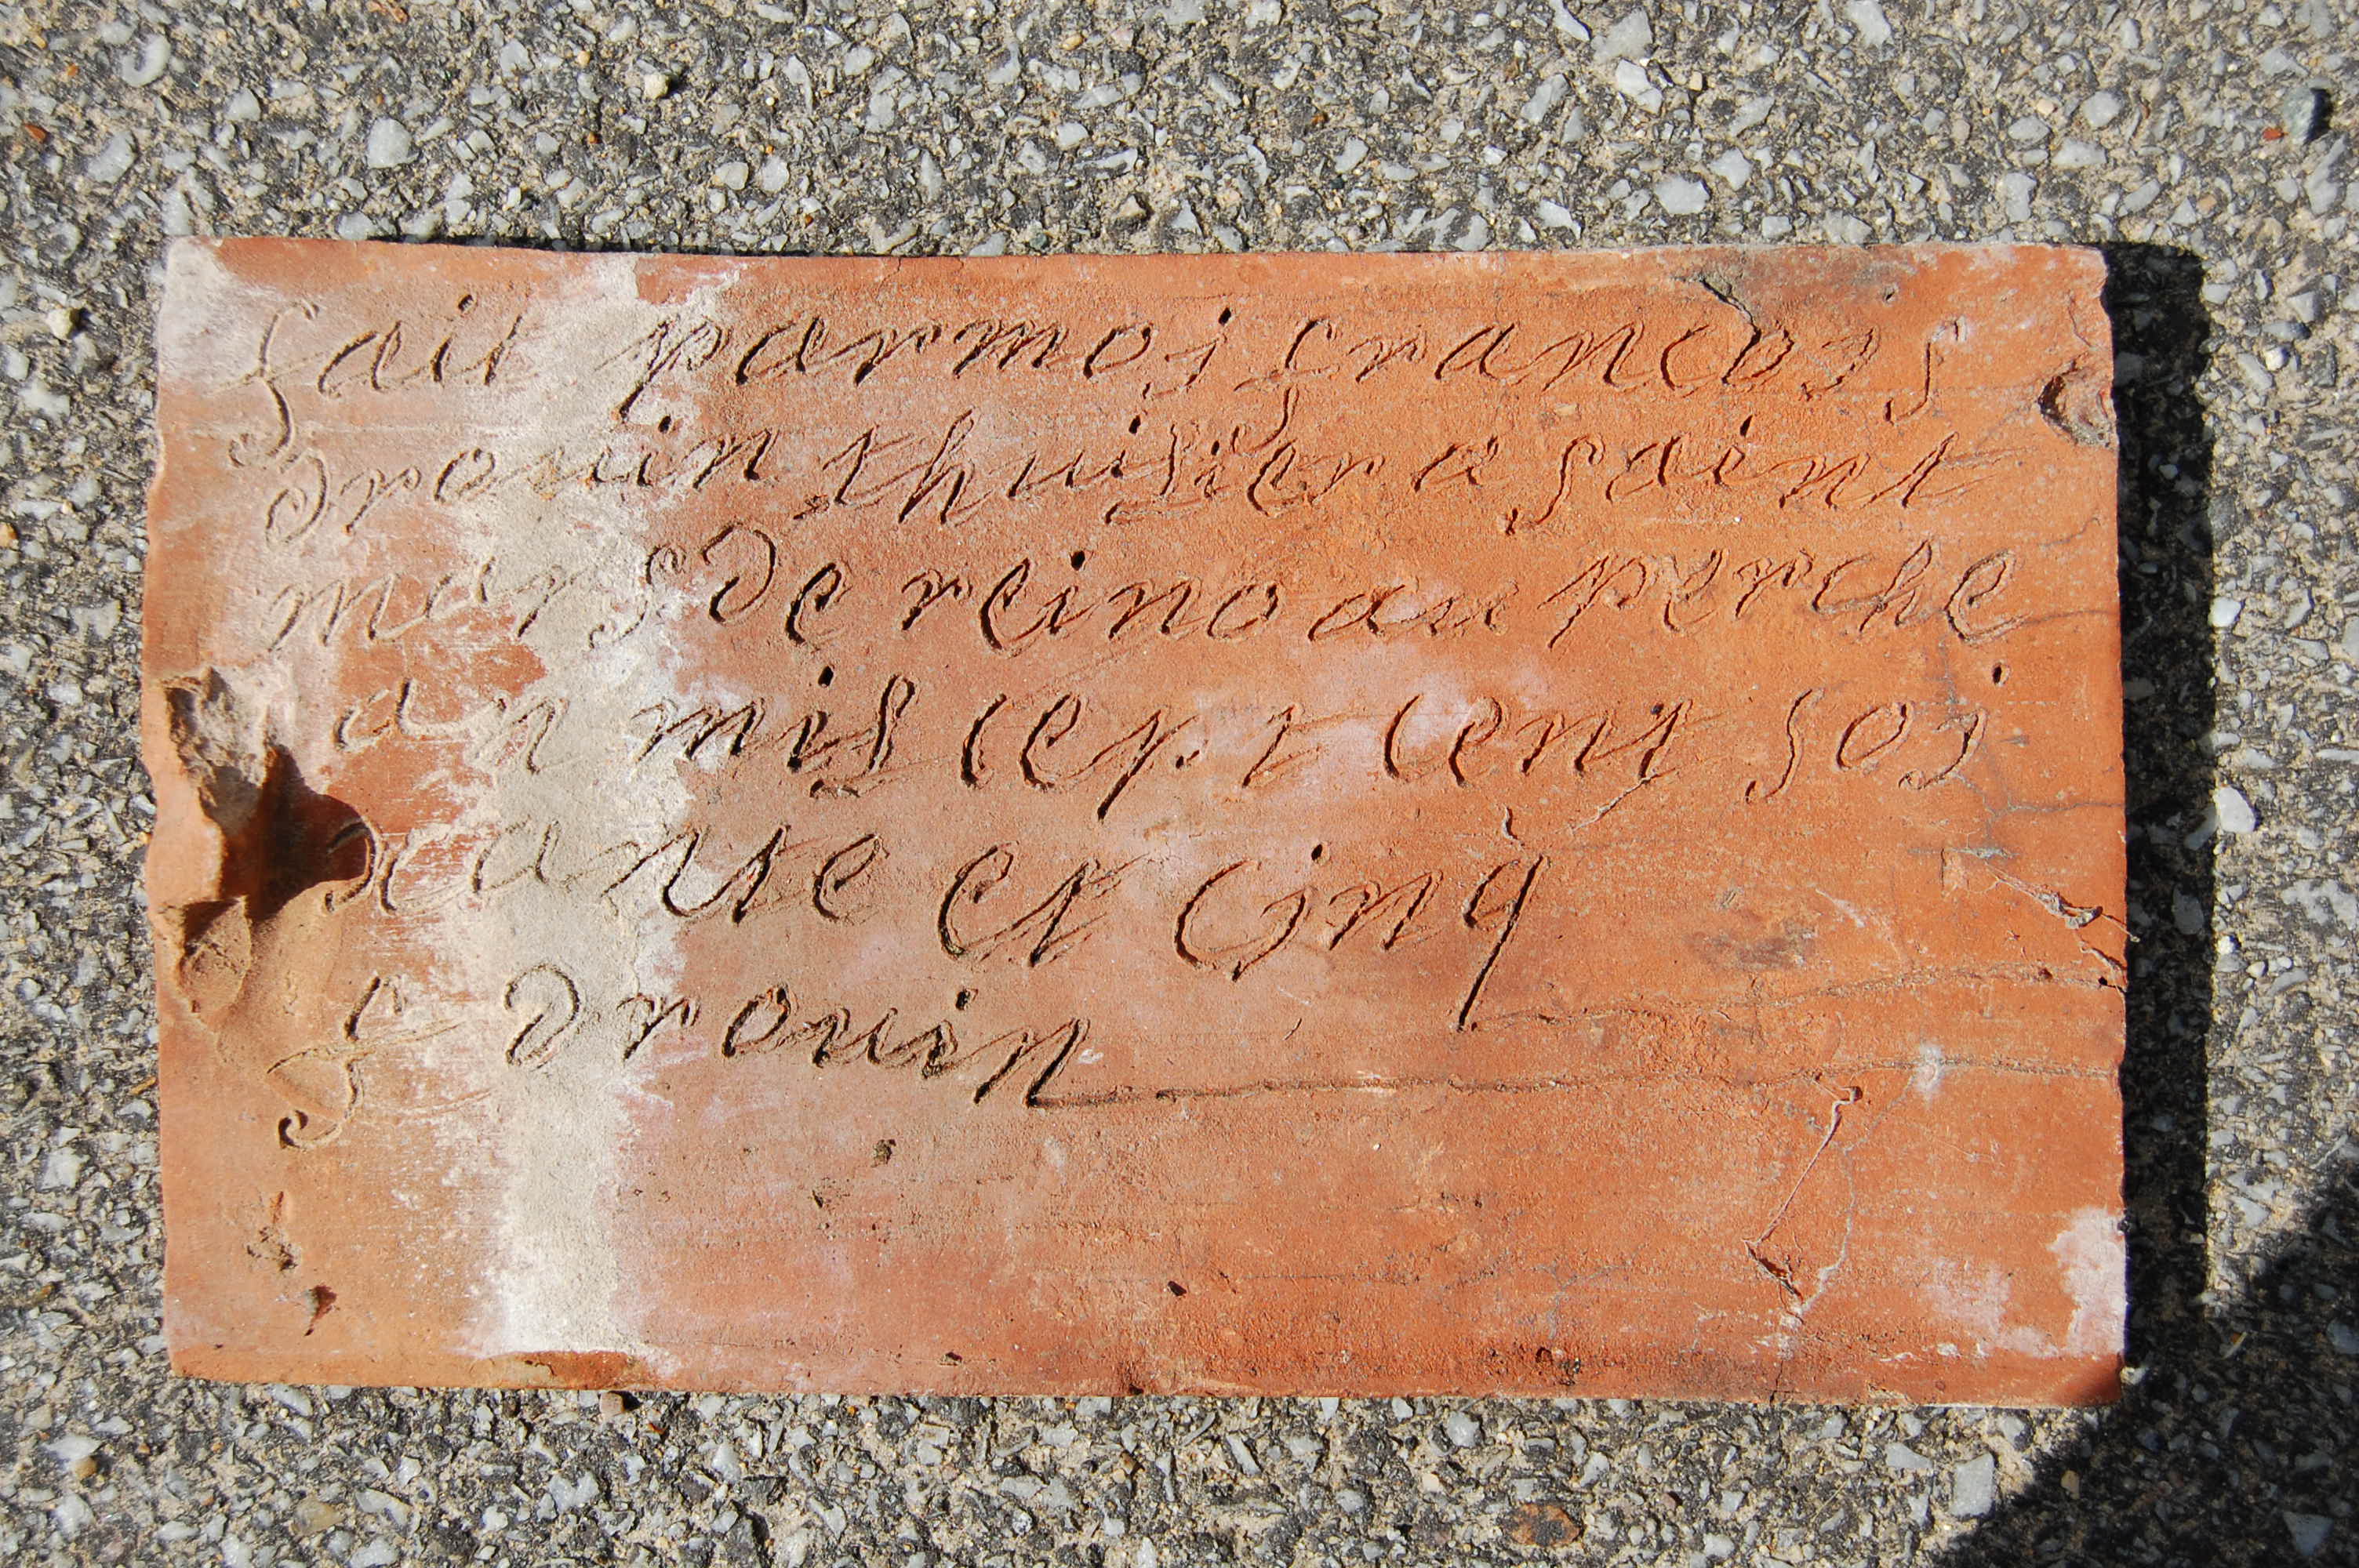 fait par moj francojs
drouin thuislier a saint
mars de reino au perche
an mis cept cent soi
xante et Cinq
f drouin